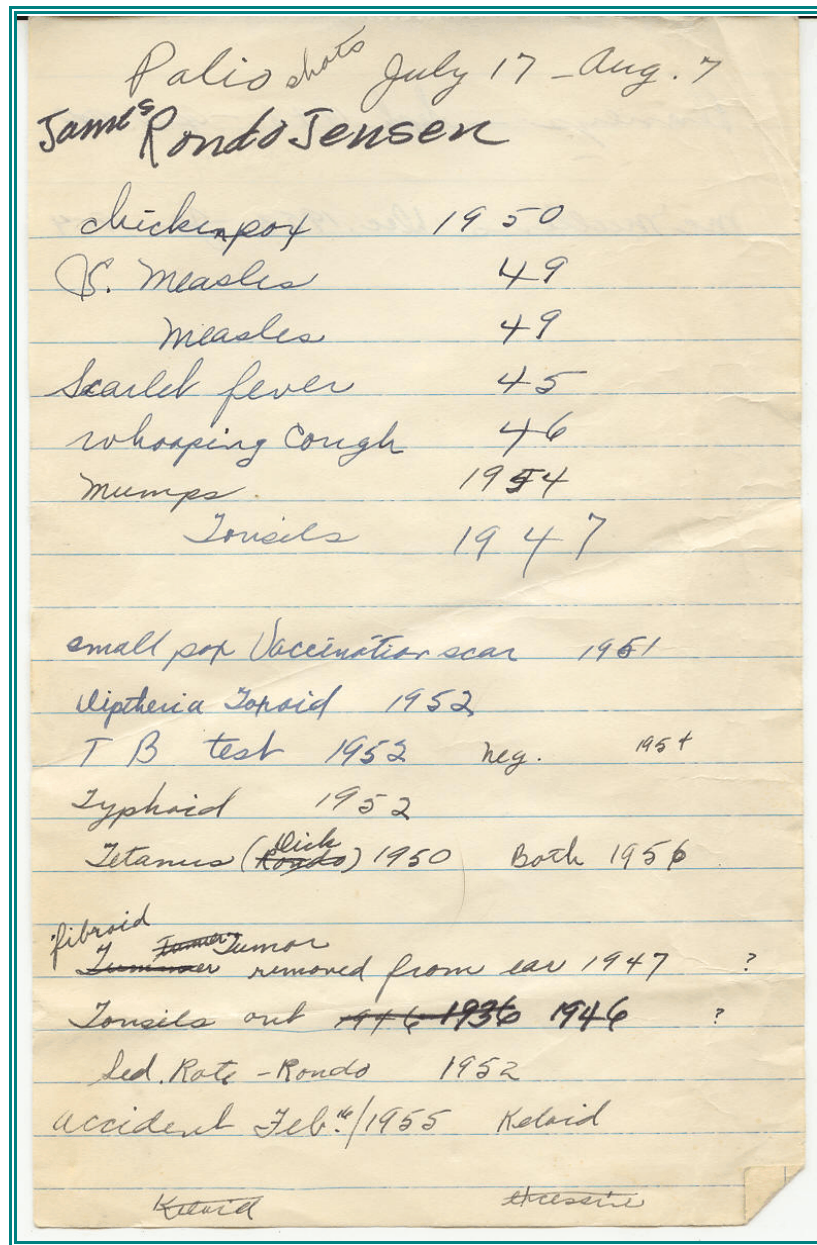 Polio shots July 17 - Aug. 7
James Rondo Jensen
chicken pox 1950
G. Measles 49
Measles 49
Scarlet fever 45
whooping Cough 46
Mumps 1954
Tonsils 1947
small pox Vaccination scar 1951
Diptheria Toxoid 1952
T B test 1952 neg. 1954
Typhoid 1952
Tetanus (Rondo Dick) 1950 Both 1956
fibroid Tumor
removed from ear 1947 ?
Tonsils out 1946 1936 1946 ?
Sed. Rate - Rondo 1952
accident Feb. 16/1955 Keloid
Keloid excessive